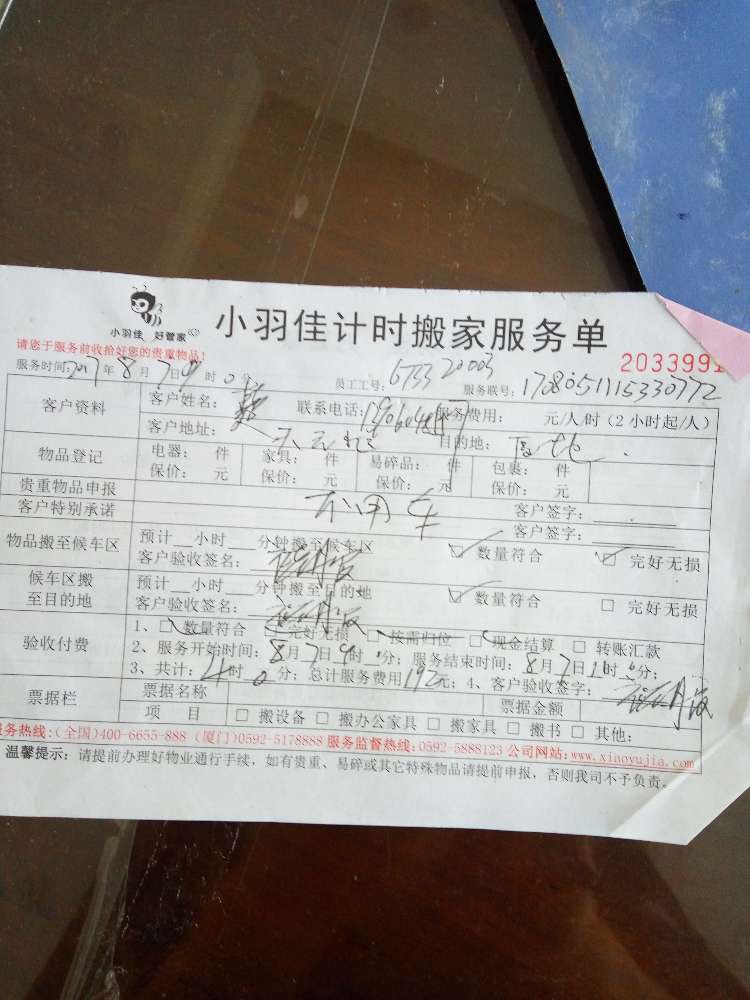 小羽佳 好管家
小羽佳计时搬家服务单
请您于服务前收拾好您的贵重物品!
2033991
服务时间:2017年8月7日9时0分 员工工号: 服务联号:1708051115330772
客户资料 客户姓名: 联系电话: 服务费用: 元/人/时(2小时起/人)
客户地址: 目的地:
物品登记 电器: 件 家具: 件 易碎品: 件 包裹: 件
保价: 元 保价: 元 保价: 元 保价: 元
贵重物品申报 客户签字:
客户特别承诺 不用车 客户签字:
物品搬至候车区 预计 小时 分钟搬至候车区 数量符合 完好无损
客户验收签名:
候车区搬至目的地 预计 小时 分钟搬至目的地 数量符合 完好无损
客户验收签名:
验收付费 1、 数量符合 完好无损 按需归位 现金结算 转账汇款
2、服务开始时间:8月7日9时 分; 服务结束时间:8月7日 时 分;
3、共计:4时0分; 总计服务费用192元; 4、客户验收签字:
票据栏 票据名称 票据金额
项 目 搬设备 搬办公家具 搬家具 搬书 其他:
服务热线:(全国)400-6655-888 (厦门)0592-5178888 服务监督热线:0592-5888123 公司网站:www.xiaoyujia.com
温馨提示:请提前办理好物业通行手续,如有贵重、易碎或其它特殊物品请提前申报,否则我司不予负责。